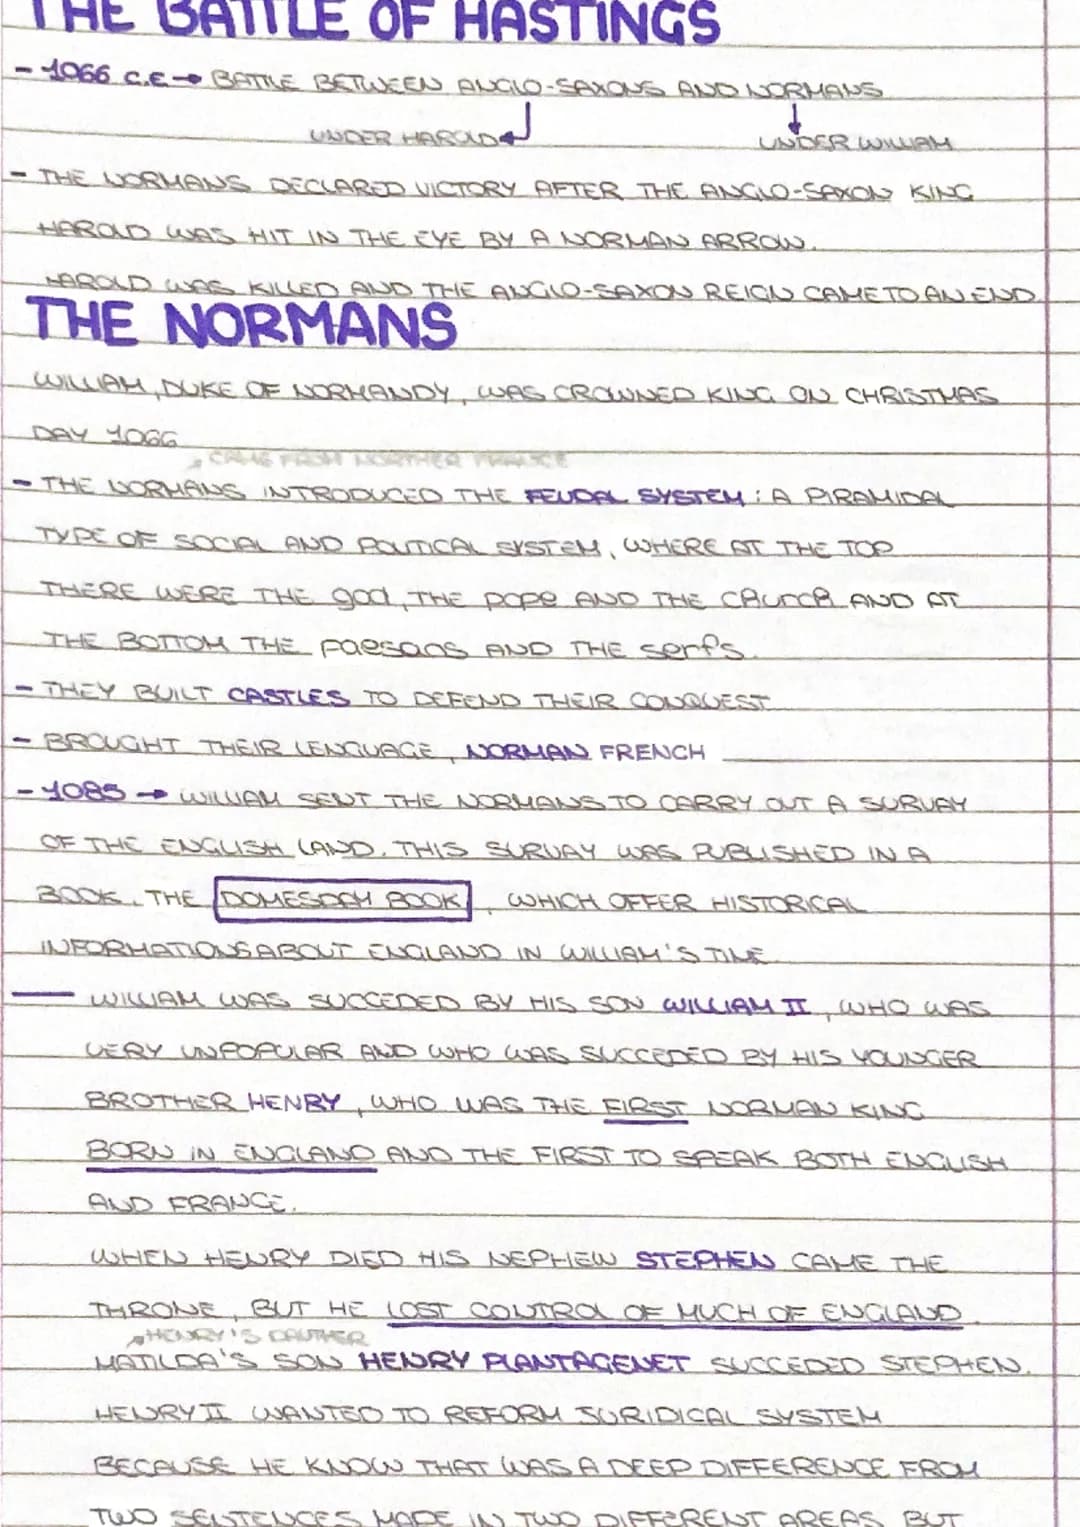 THE BATTLE OF HASTINGS
- 1066 C.E → BATTLE BETWEEN ANGLO-SAXONS AND NORMANS
UNDER HAROLD UNDER WILLIAM
- THE NORMANS DECLARED VICTORY AFTER THE ANGLO-SAXON KING
HAROLD WAS HIT IN THE EYE BY A NORMAN ARROW.
HAROLD WAS KILLED AND THE ANGLO-SAXON REIGN CAME TO AN END
THE NORMANS
WILLIAM, DUKE OF NORMANDY, WAS CROWNED KING ON CHRISTMAS
DAY 1066
CAME FROM NORTHER FRANCE
- THE NORMANS INTRODUCED THE FEUDAL SYSTEM: A PIRAMIDAL
TYPE OF SOCIAL AND POLITICAL SYSTEM, WHERE AT THE TOP
THERE WERE THE god, THE pope AND THE CRURCR AND AT
THE BOTTOM THE paesans AND THE serfs.
- THEY BUILT CASTLES TO DEFEND THEIR CONQUEST
- BROUGHT THEIR LENGUAGE, NORMAN FRENCH
- 1085 → WILLIAM SENT THE NORMANS TO CARRY OUT A SURVAY
OF THE ENGLISH LAND. THIS SURVAY WAS PUBLISHED IN A
BOOK, THE DOMESDAY BOOK, WHICH OFFER HISTORICAL
INFORMATIONS ABOUT ENGLAND IN WILLIAM'S TIME
WILLIAM WAS SUCCEDED BY HIS SON WILLIAM II, WHO WAS
VERY UNPOPULAR AND WHO WAS SUCCEDED BY HIS YOUNGER
BROTHER HENRY, WHO WAS THE FIRST NORMAN KING
BORN IN ENGLAND AND THE FIRST TO SPEAK BOTH ENGLISH
AND FRANCE.
WHEN HENRY DIED HIS NEPHEW STEPHEN CAME THE
THRONE, BUT HE LOST CONTROL OF MUCH OF ENGLAND.
HENRY'S DAUTHER
MATILDA'S SON HENRY PLANTAGENET SUCCEDED STEPHEN.
HENRY II WANTED TO REFORM JURIDICAL SYSTEM
BECAUSE HE KNOW THAT WAS A DEEP DIFFERENCE FROM
TWO SENTENCES MADE IN TWO DIFFERENT AREAS, BUT